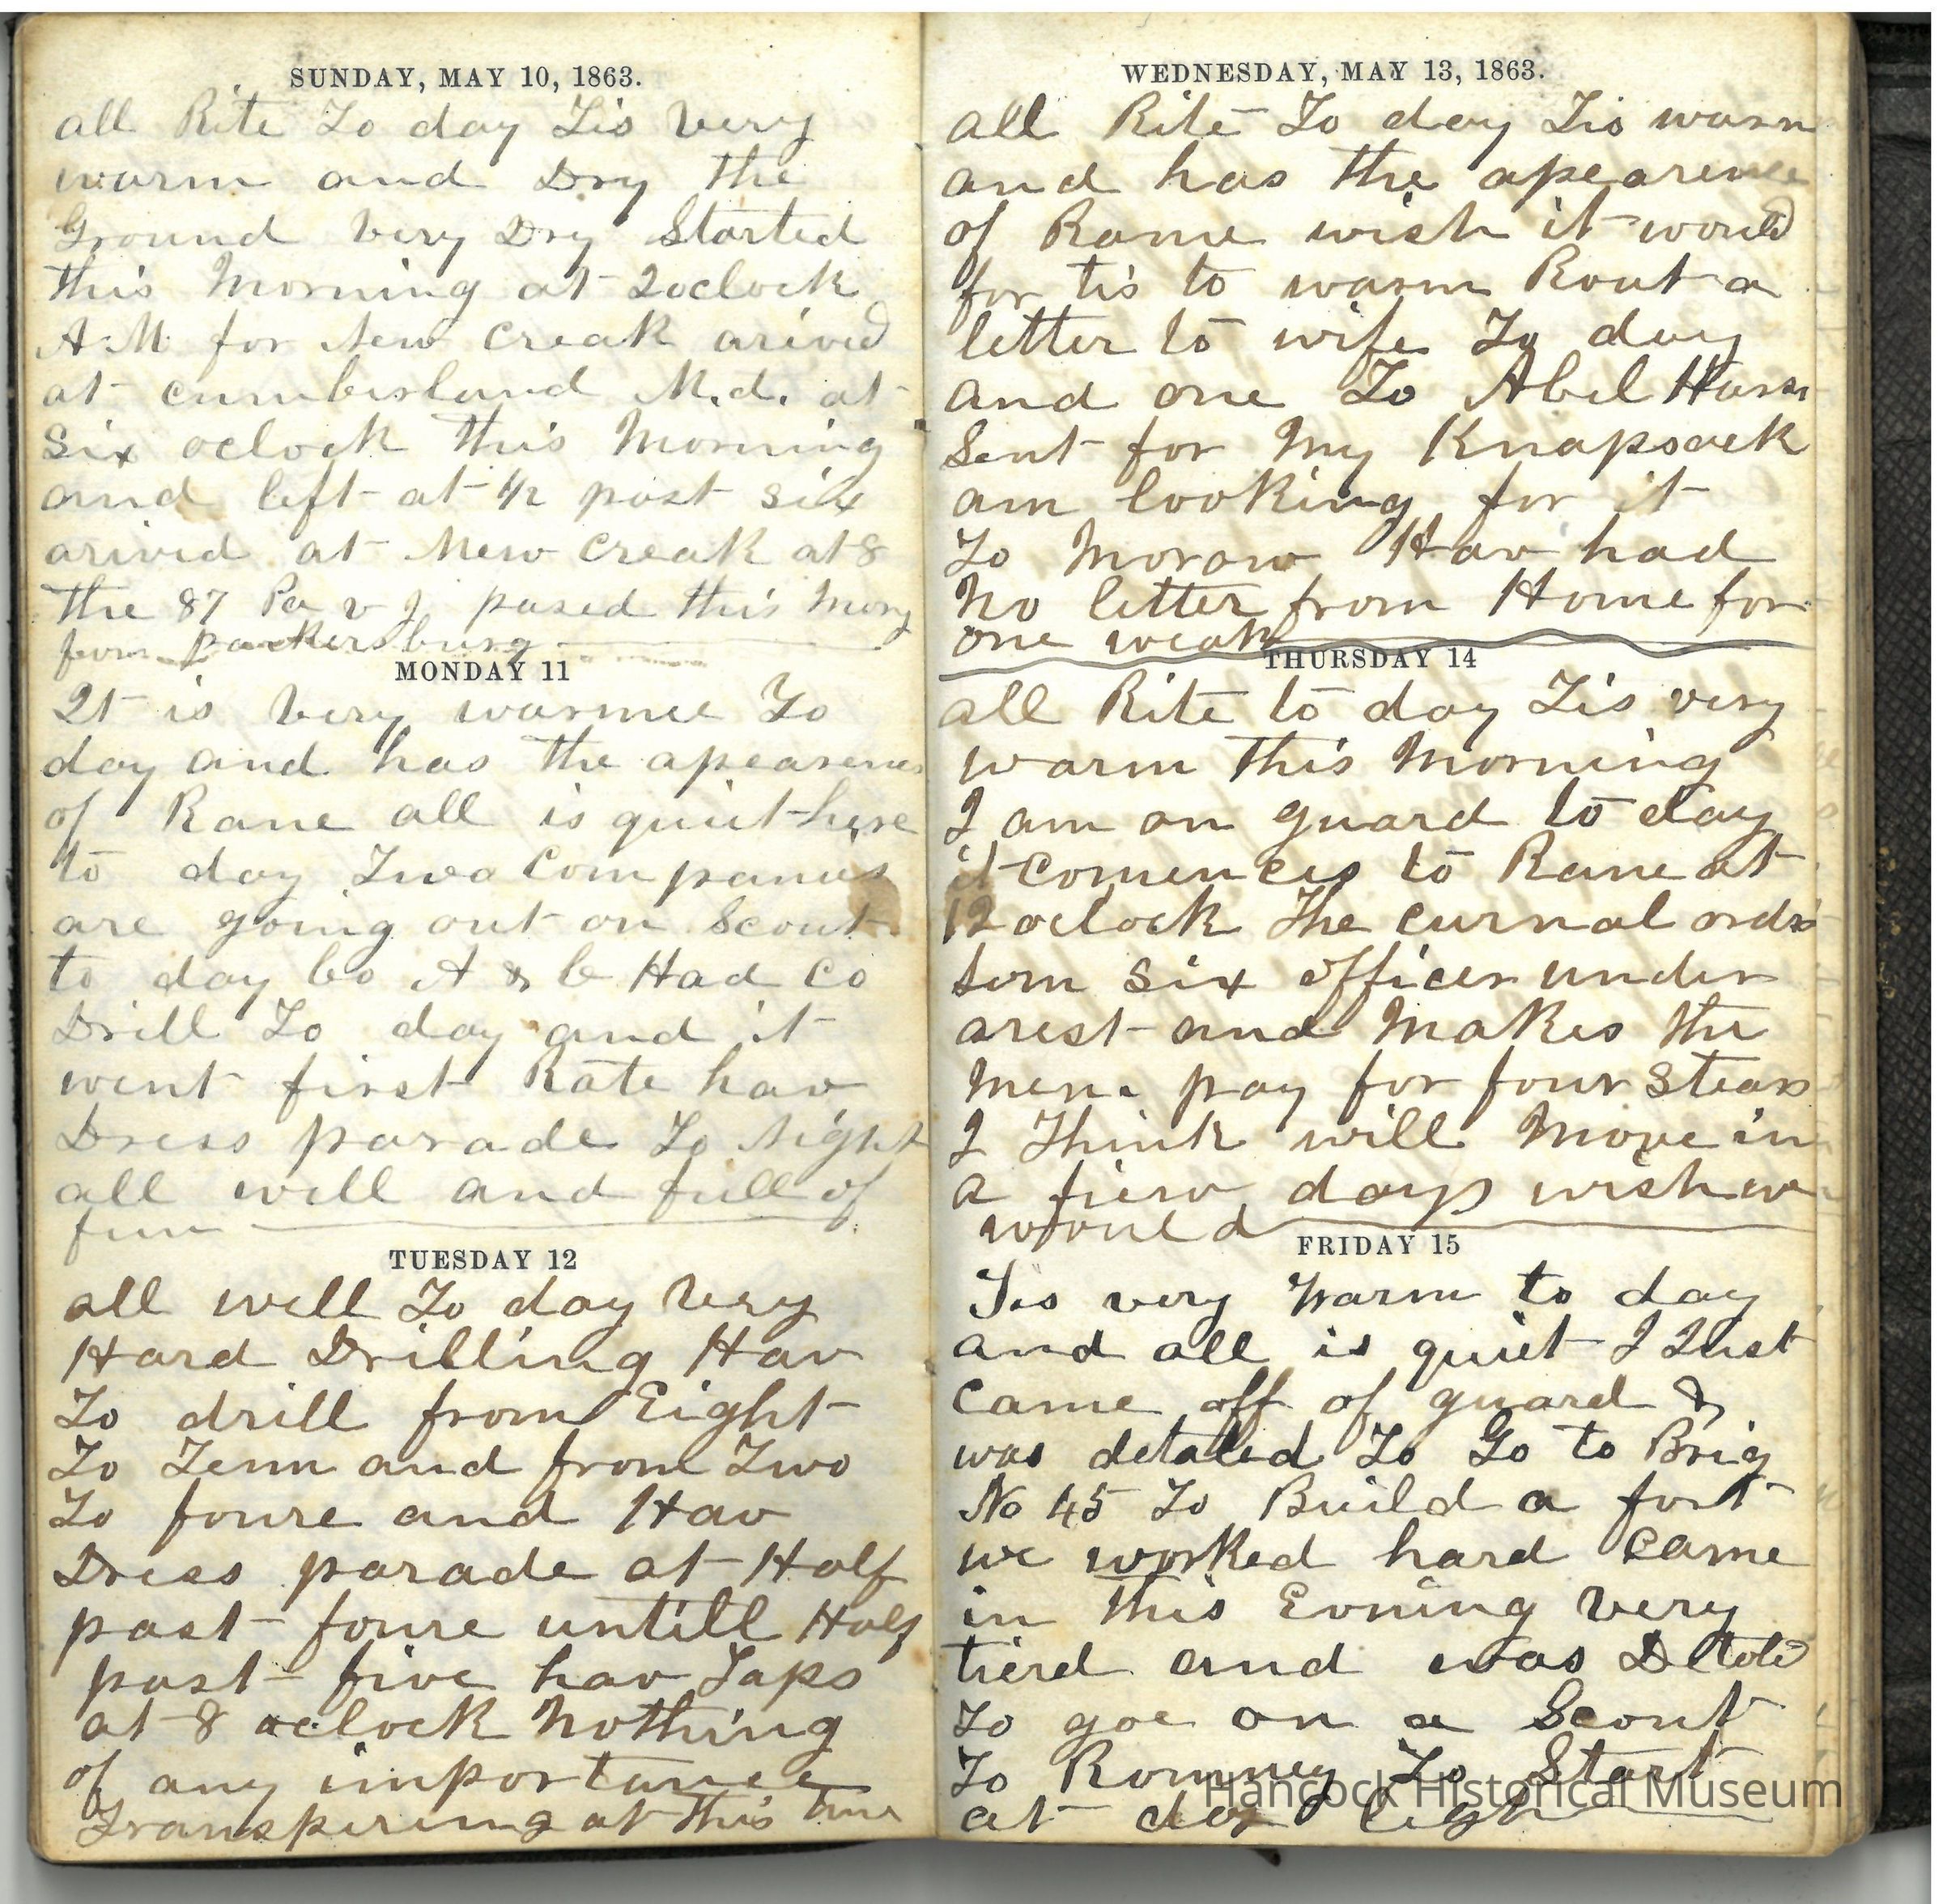 SUNDAY, MAY 10, 1863.
all Rite To day Tis very
warm and Dry the
Ground very Dry Started
this Morning at 2oclock
A.M. for New Creak arived
at cumberland M.d. at
six oclock this Morning
and left at 1/2 past six
arived at New Creak at 8
the 87 Pa v I pased this Morng
from parkersburg
MONDAY 11
It is very warmee To
day and has the apearence
of Rane all is quiet here
to day Two Companies
are going out on Scout
to day Co A & C Had Co
Drill To day and it
went first Rate hav
Dress parade To Night
all well and full of
fun
TUESDAY 12
all well To day very
Hard Drilling Hav
To drill from Eight
To Tenn and from Two
To foure and Hav
Dress parade at Half
past foure untill Half
past five hav Taps
at 8 oclock Nothing
of any importance
Transpiring at this time
WEDNESDAY, MAY 13, 1863.
all Rite To day Tis warm
and has the apearence
of Rane wish it would
for tis to warm Rout a
letter to wife To day
and one To Abel
Sent for My Knapsack
am looking for it
To Morow Hav had
No letter from Home for
one weak
THURSDAY 14
all Rite to day Tis very
warm this Morning
I am on guard to day
it comences to Rane at
12 oclock The curnal ords
som six officer under
arest and Makes the
Men pay for four
I Think will Move in
a fiew days wish we
would
FRIDAY 15
Tis very Warm to day
and all is quiet I Just
came off of guard &
was detaled To Go to Brig
No 45 To Build a fort
we worked hard Came
in this Evning very
tierd and was Detold
To goe on a Scout
To Romney To Start
at day light
Hancock Historical Museum